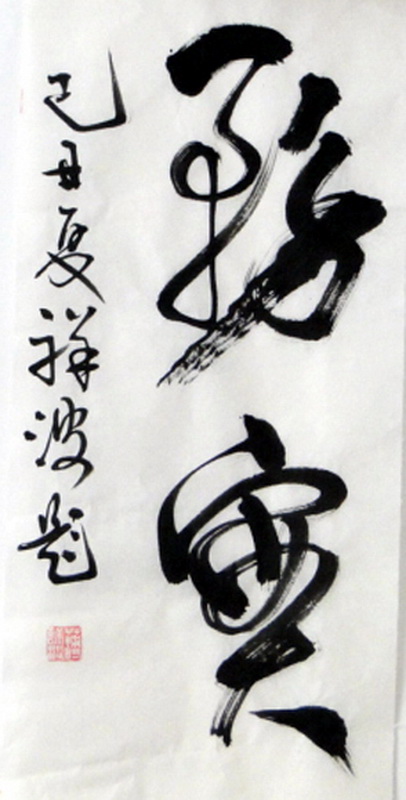 務實
己丑夏祥波題